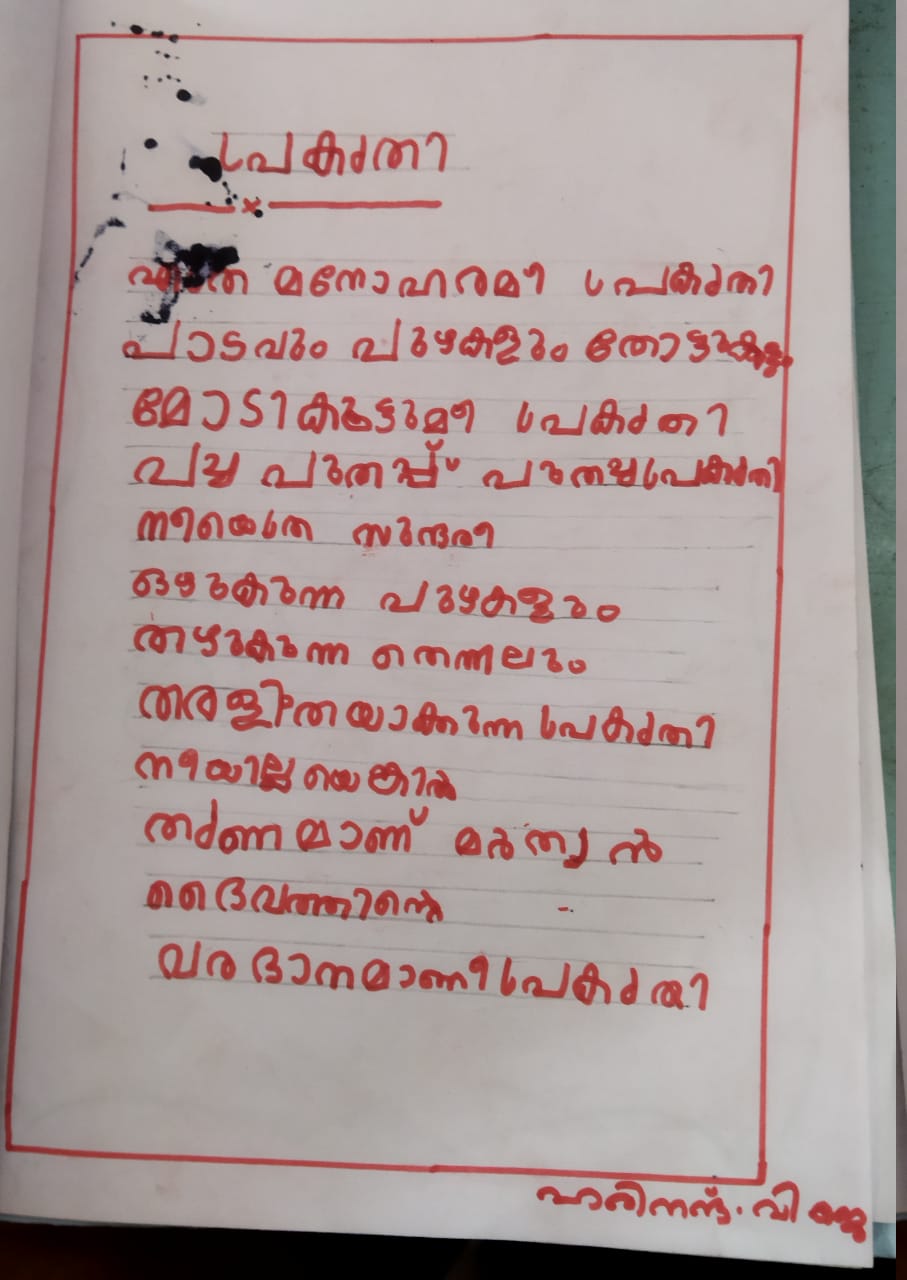 പ്രകൃതി
എത്ര മനോഹരമീ പ്രകൃതി
പാടവും പുഴകളും തോട്ടുകളും
മോടികൂട്ടുമീ പ്രകൃതി
പച്ച പുതപ്പ് പുതച്ചപ്രകൃതി
നീയെത്ര സുന്ദരി
ഒഴുകുന്ന പുഴകളും
തഴുകുന്ന തെന്നലും
തരളിതയാക്കുന്ന പ്രകൃതി
നീയില്ലയെങ്കിൽ
തൃണമാണ് മർത്യൻ
ദൈവത്തിന്റെ
വരദാനമാണീ പ്രകൃതി
ഹരിനന്ദ്. വി